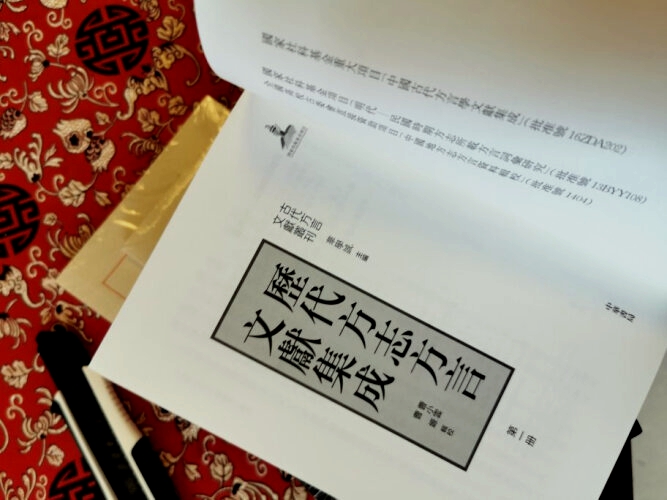 國家社科基金重大項目「中國古代方言學文獻集成」（批准號 16ZDA202）
國家社科基金項目「明代—民國時期方志所載方言詞彙研究」（批准號 13BYY108）
全國高校古委會直接資助項目「中國地方志方言資料輯校」（批准號 1404）
古代方言
文獻叢刊
華學誠 主編
歷代方志方言
文獻集成
曹小雲
曹嫄 輯校
第一冊
中華書局